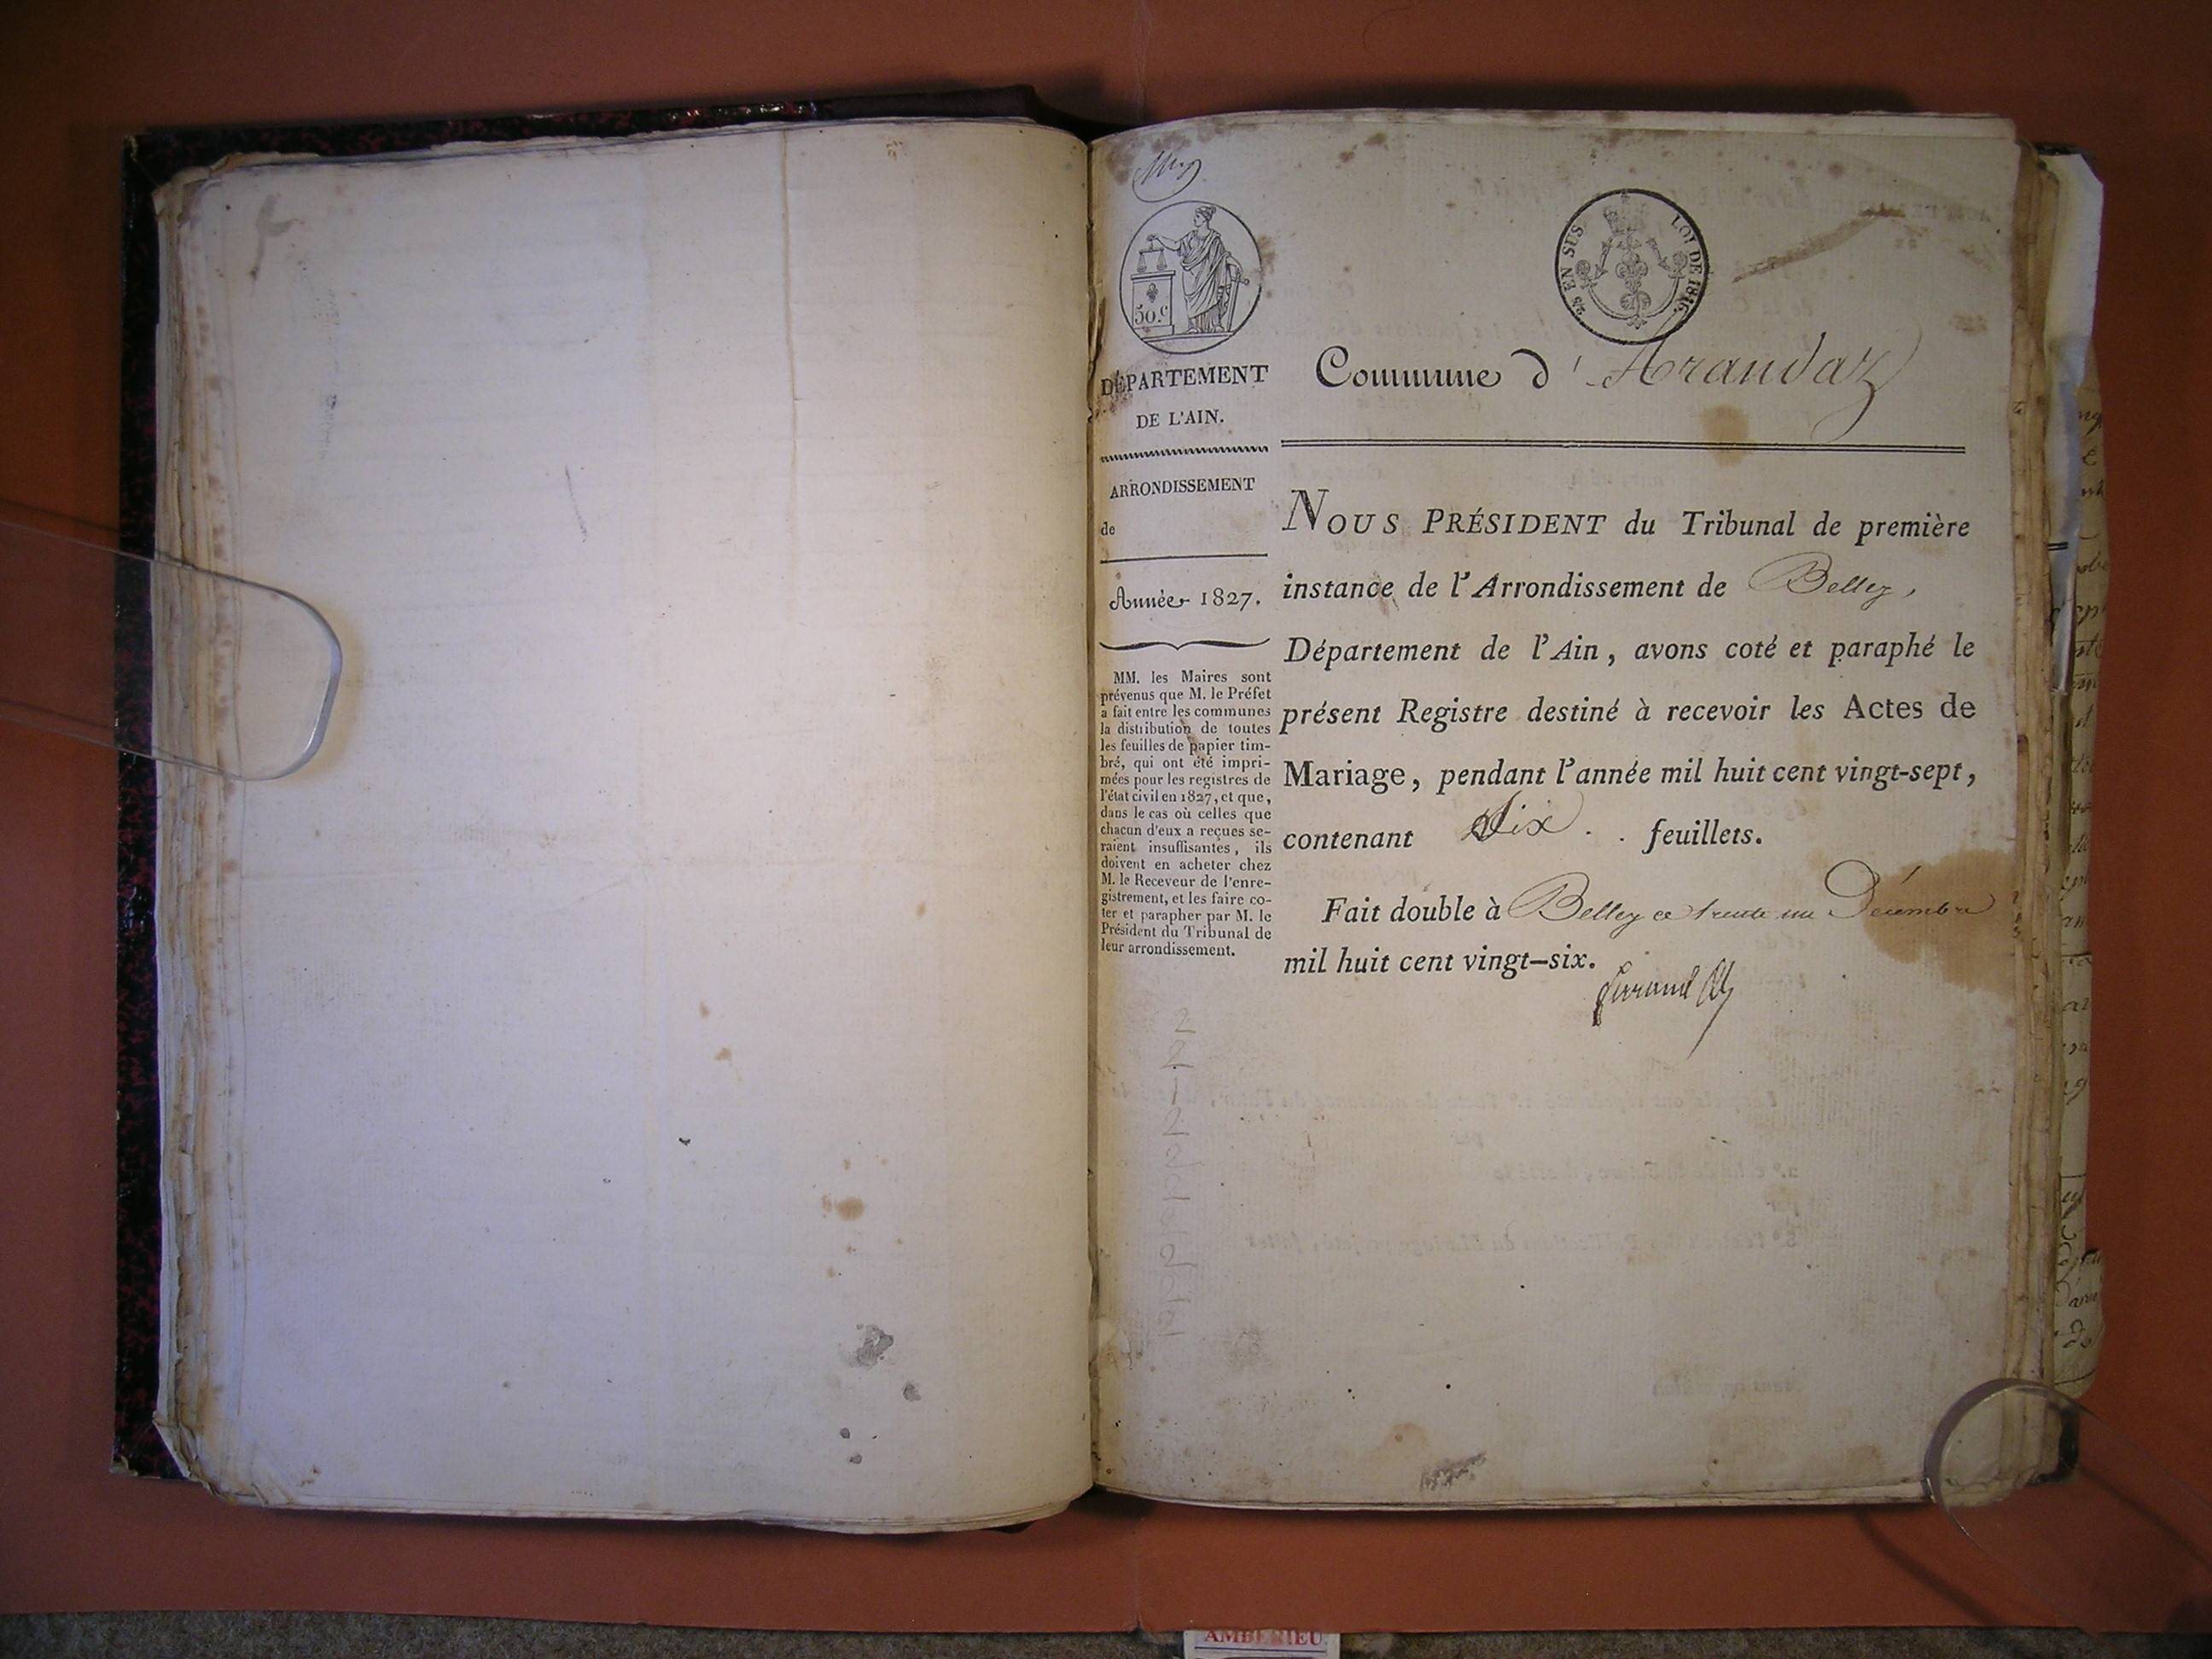 50.c
2/5 EN SUS LOI DE 1816.
DÉPARTEMENT
DE L'AIN.
ARRONDISSEMENT
de
Année 1827.
MM. les Maires sont
prévenus que M. le Préfet
a fait entre les communes
la distribution de toutes
les feuilles de papier tim-
bré, qui ont été impri-
mées pour les registres de
l'état civil en 1827, et que,
dans le cas où celles que
chacun d'eux a reçues se-
raient insuffisantes, ils
doivent en acheter chez
M. le Receveur de l'enre-
gistrement, et les faire co-
ter et parapher par M. le
Président du Tribunal de
leur arrondissement.
2
2
1
2
2
2
2
Commune d'Arandaz
NOUS PRÉSIDENT du Tribunal de première
instance de l'Arrondissement de Belley,
Département de l'Ain, avons coté et paraphé le
présent Registre destiné à recevoir les Actes de
Mariage, pendant l'année mil huit cent vingt-sept,
contenant Six feuillets.
Fait double à Belley ce trente un Décembre
mil huit cent vingt-six.
AMBERIEU